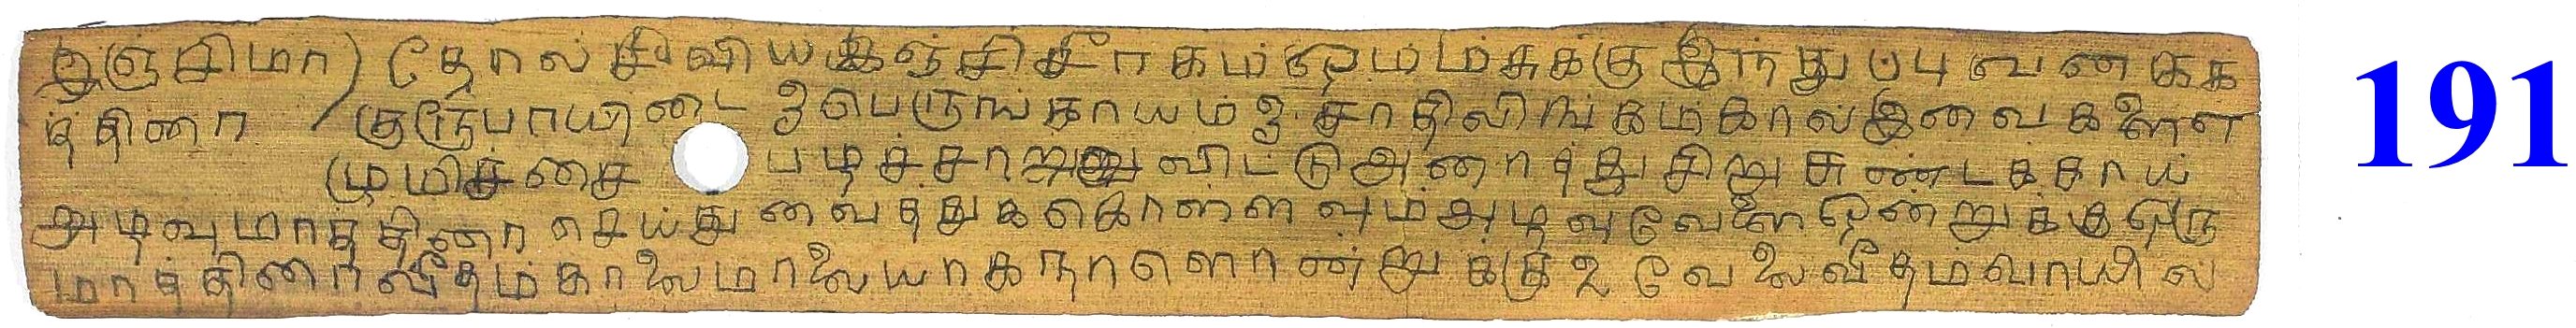 இஞ்சிமா) (தோல் சீவிய இஞ்சி சீரகம் ஓமம் சுக்கு இந்துப்பு வகைக
குரும்பாயிடை 3 பெருங்காயம் 3 சாதிலிங்கம் கால் இவைகளை
முமிச்சை பழச்சாறு விட்டு அரைத்து சிறு சுண்டக்காய்
அளவு மாத்திரை செய்து வைத்துக்கொள்ளவும் அளவு வேளை ஒன்றுக்கு ஒரு
மாத்திரை வீதம் காலை மாலையாக நாளொன்றுக்கு 2 வேலை வீதம் வாயில்
191